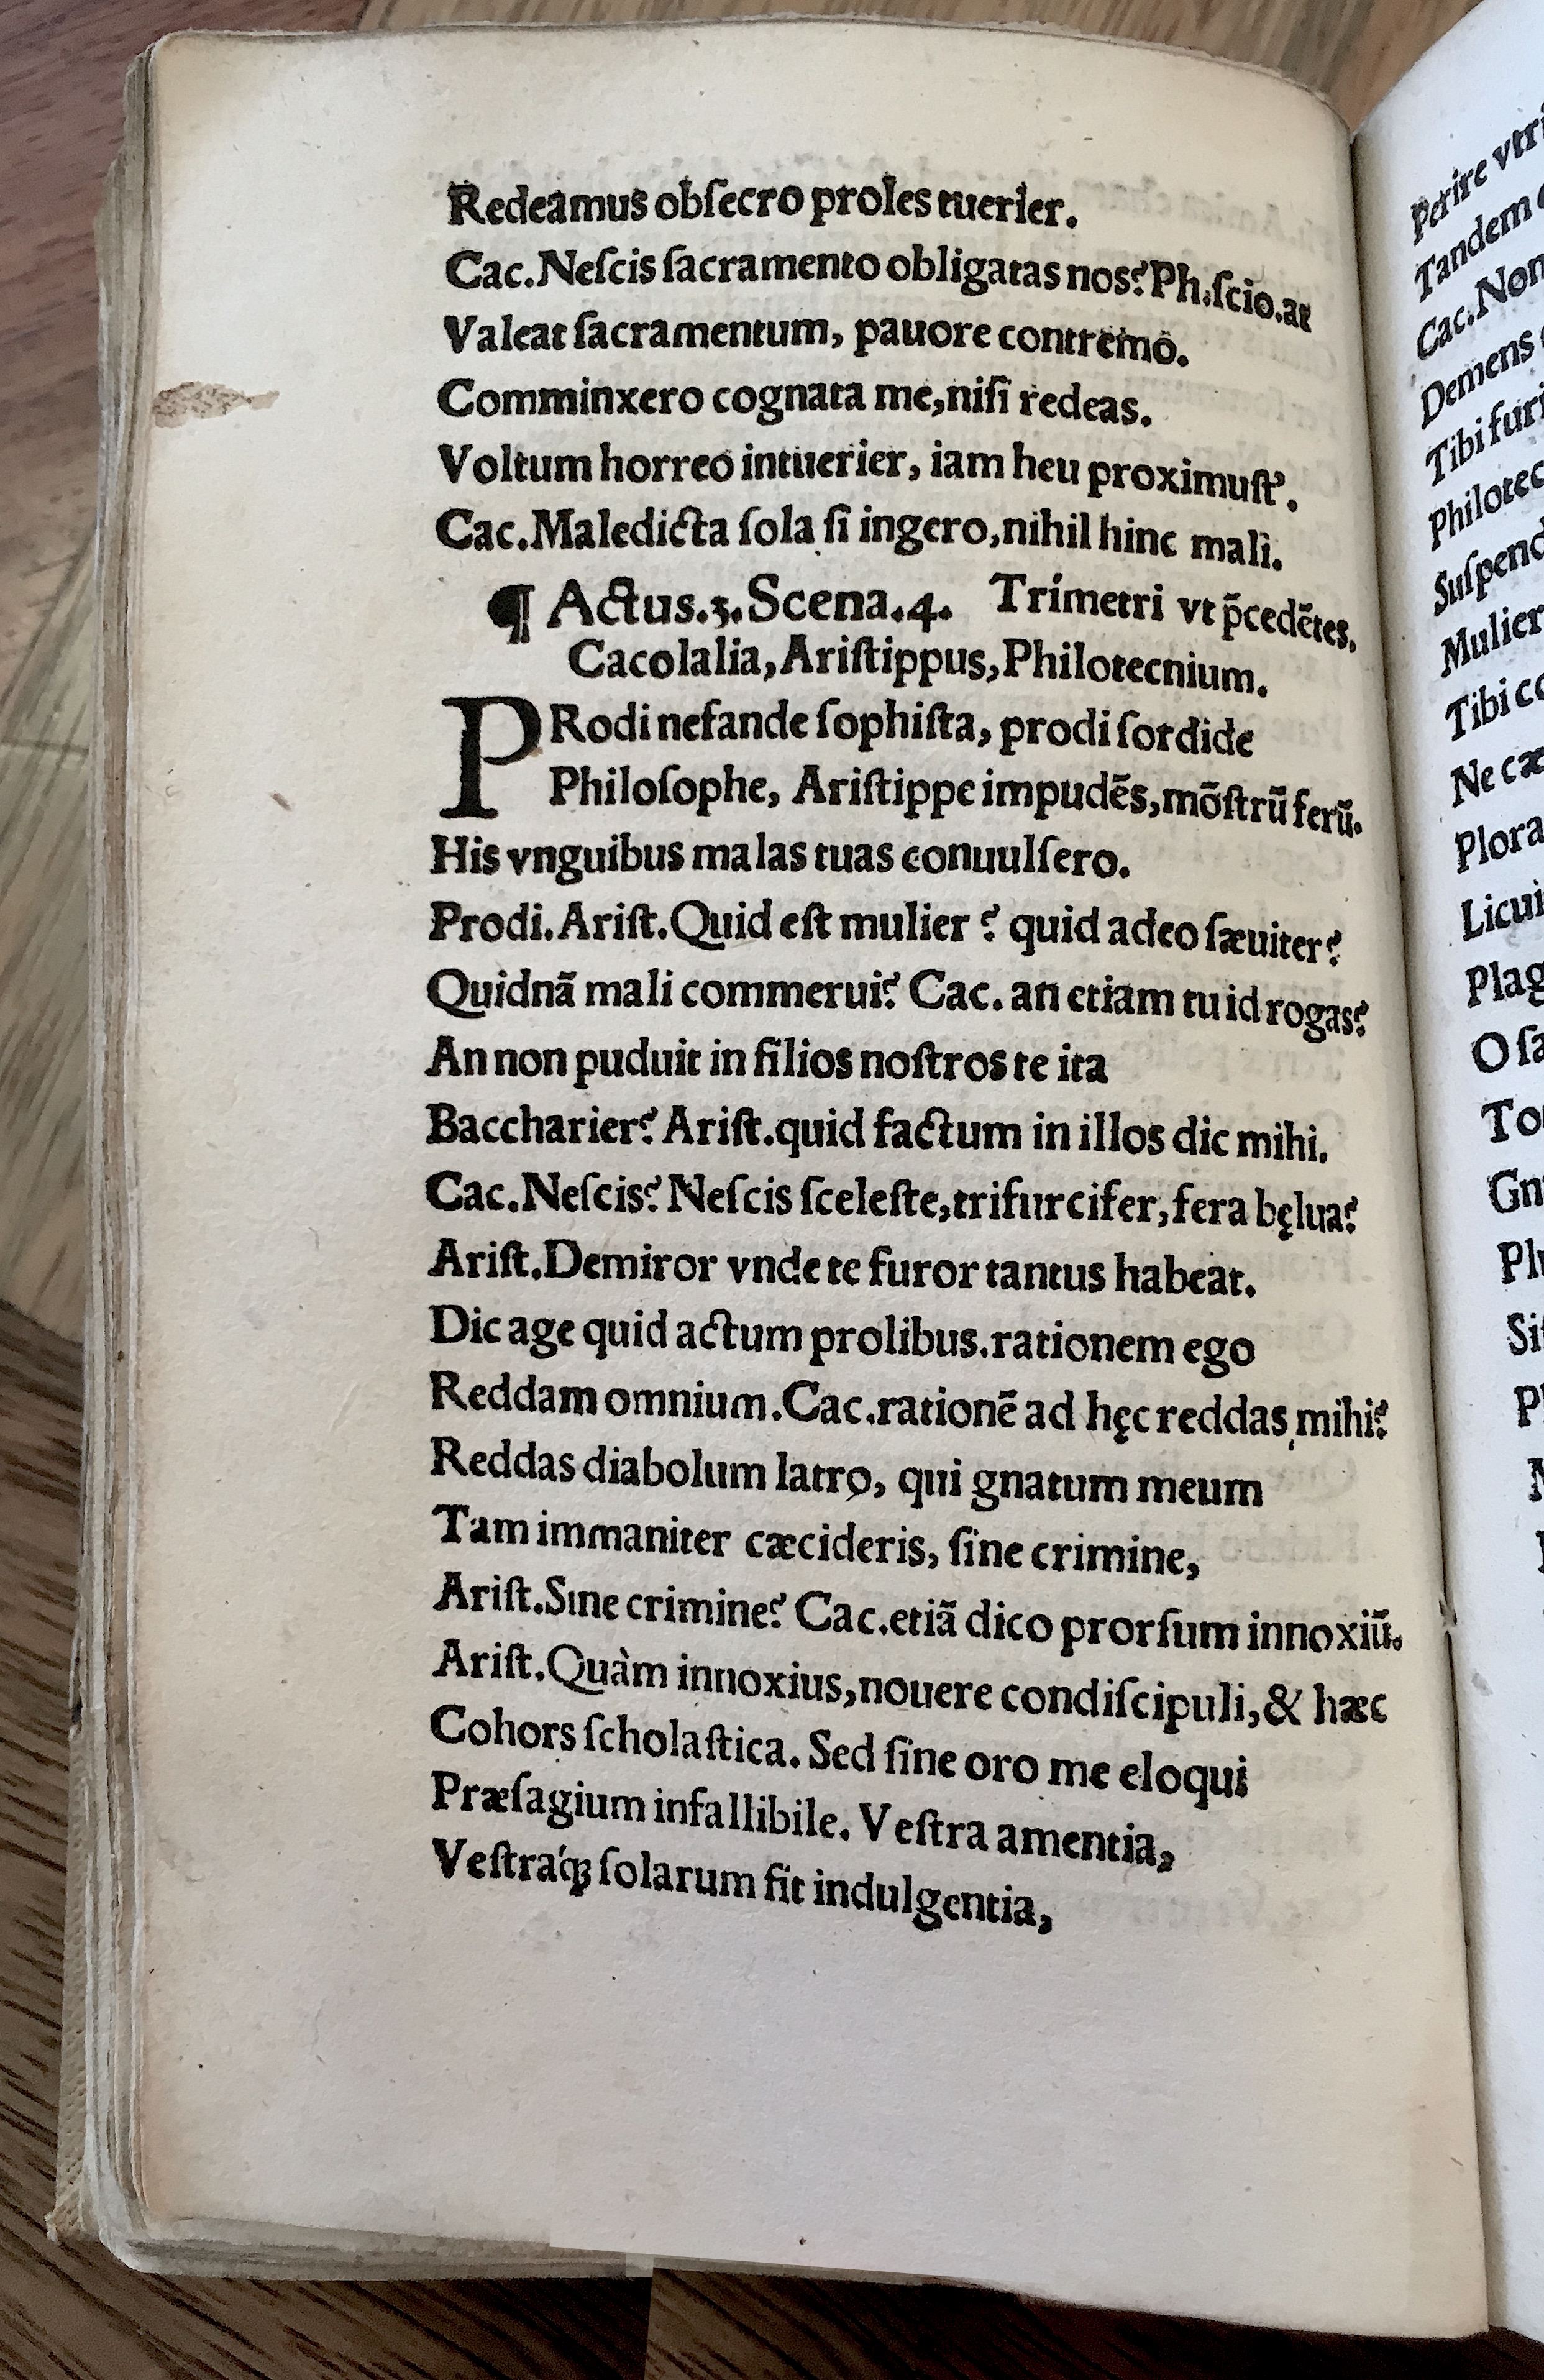 Redeamus obſecro proles tuerier.
Cac.Neſcis ſacramento obligatas nos? Ph.ſcio.at
Valeat ſacramentum, pauore contremo.
Comminxero cognata me,niſi redeas.
Voltum horreo intuerier, iam heu proximuſt'.
Cac.Maledicta ſola ſi ingero,nihil hinc mali.
¶ Actus.3.Scena.4. Trimetri vt p̄cedētes.
Cacolalia,Ariſtippus,Philotecnium.
PRodi nefande ſophiſta, prodi ſordide
Philoſophe, Ariſtippe impudēs,mōſtrū ferū.
His vnguibus malas tuas conuulſero.
Prodi.Ariſt.Quid eſt mulier ? quid adeo ſæuiter?
Quidnā mali commerui? Cac. an etiam tu id rogas?
An non puduit in filios noſtros te ita
Baccharier? Ariſt.quid factum in illos dic mihi.
Cac.Neſcis? Neſcis ſceleſte,trifurcifer,fera bęlua?
Ariſt.Demiror vnde te furor tantus habeat.
Dic age quid actum prolibus.rationem ego
Reddam omnium.Cac.rationē ad hęc reddas mihi?
Reddas diabolum latro, qui gnatum meum
Tam immaniter cæcideris, ſine crimine,
Ariſt.Sine crimine? Cac.etiā dico prorſum innoxiū.
Ariſt.Quàm innoxius,nouere condiſcipuli,& hæc
Cohors ſcholaſtica. Sed ſine oro me eloqui
Præſagium infallibile. Veſtra amentia,
Veſtraq́ꝫ ſolarum fit indulgentia,
Perire
Tandem
Cac.Non
Demens
Tibi
Mulier
Tibi
Ne
Licui
O